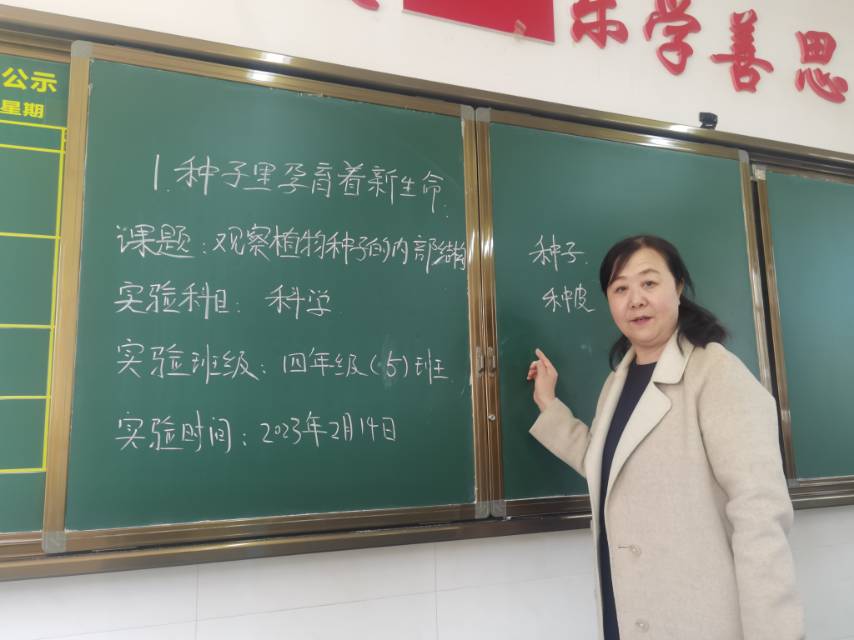 乐学善思
公示
星期
1.种子里孕育着新生命
课题：观察植物种子的内部结构
实验科目：科学
实验班级：四年级（5）班
实验时间：2023年2月14日
种子
种皮